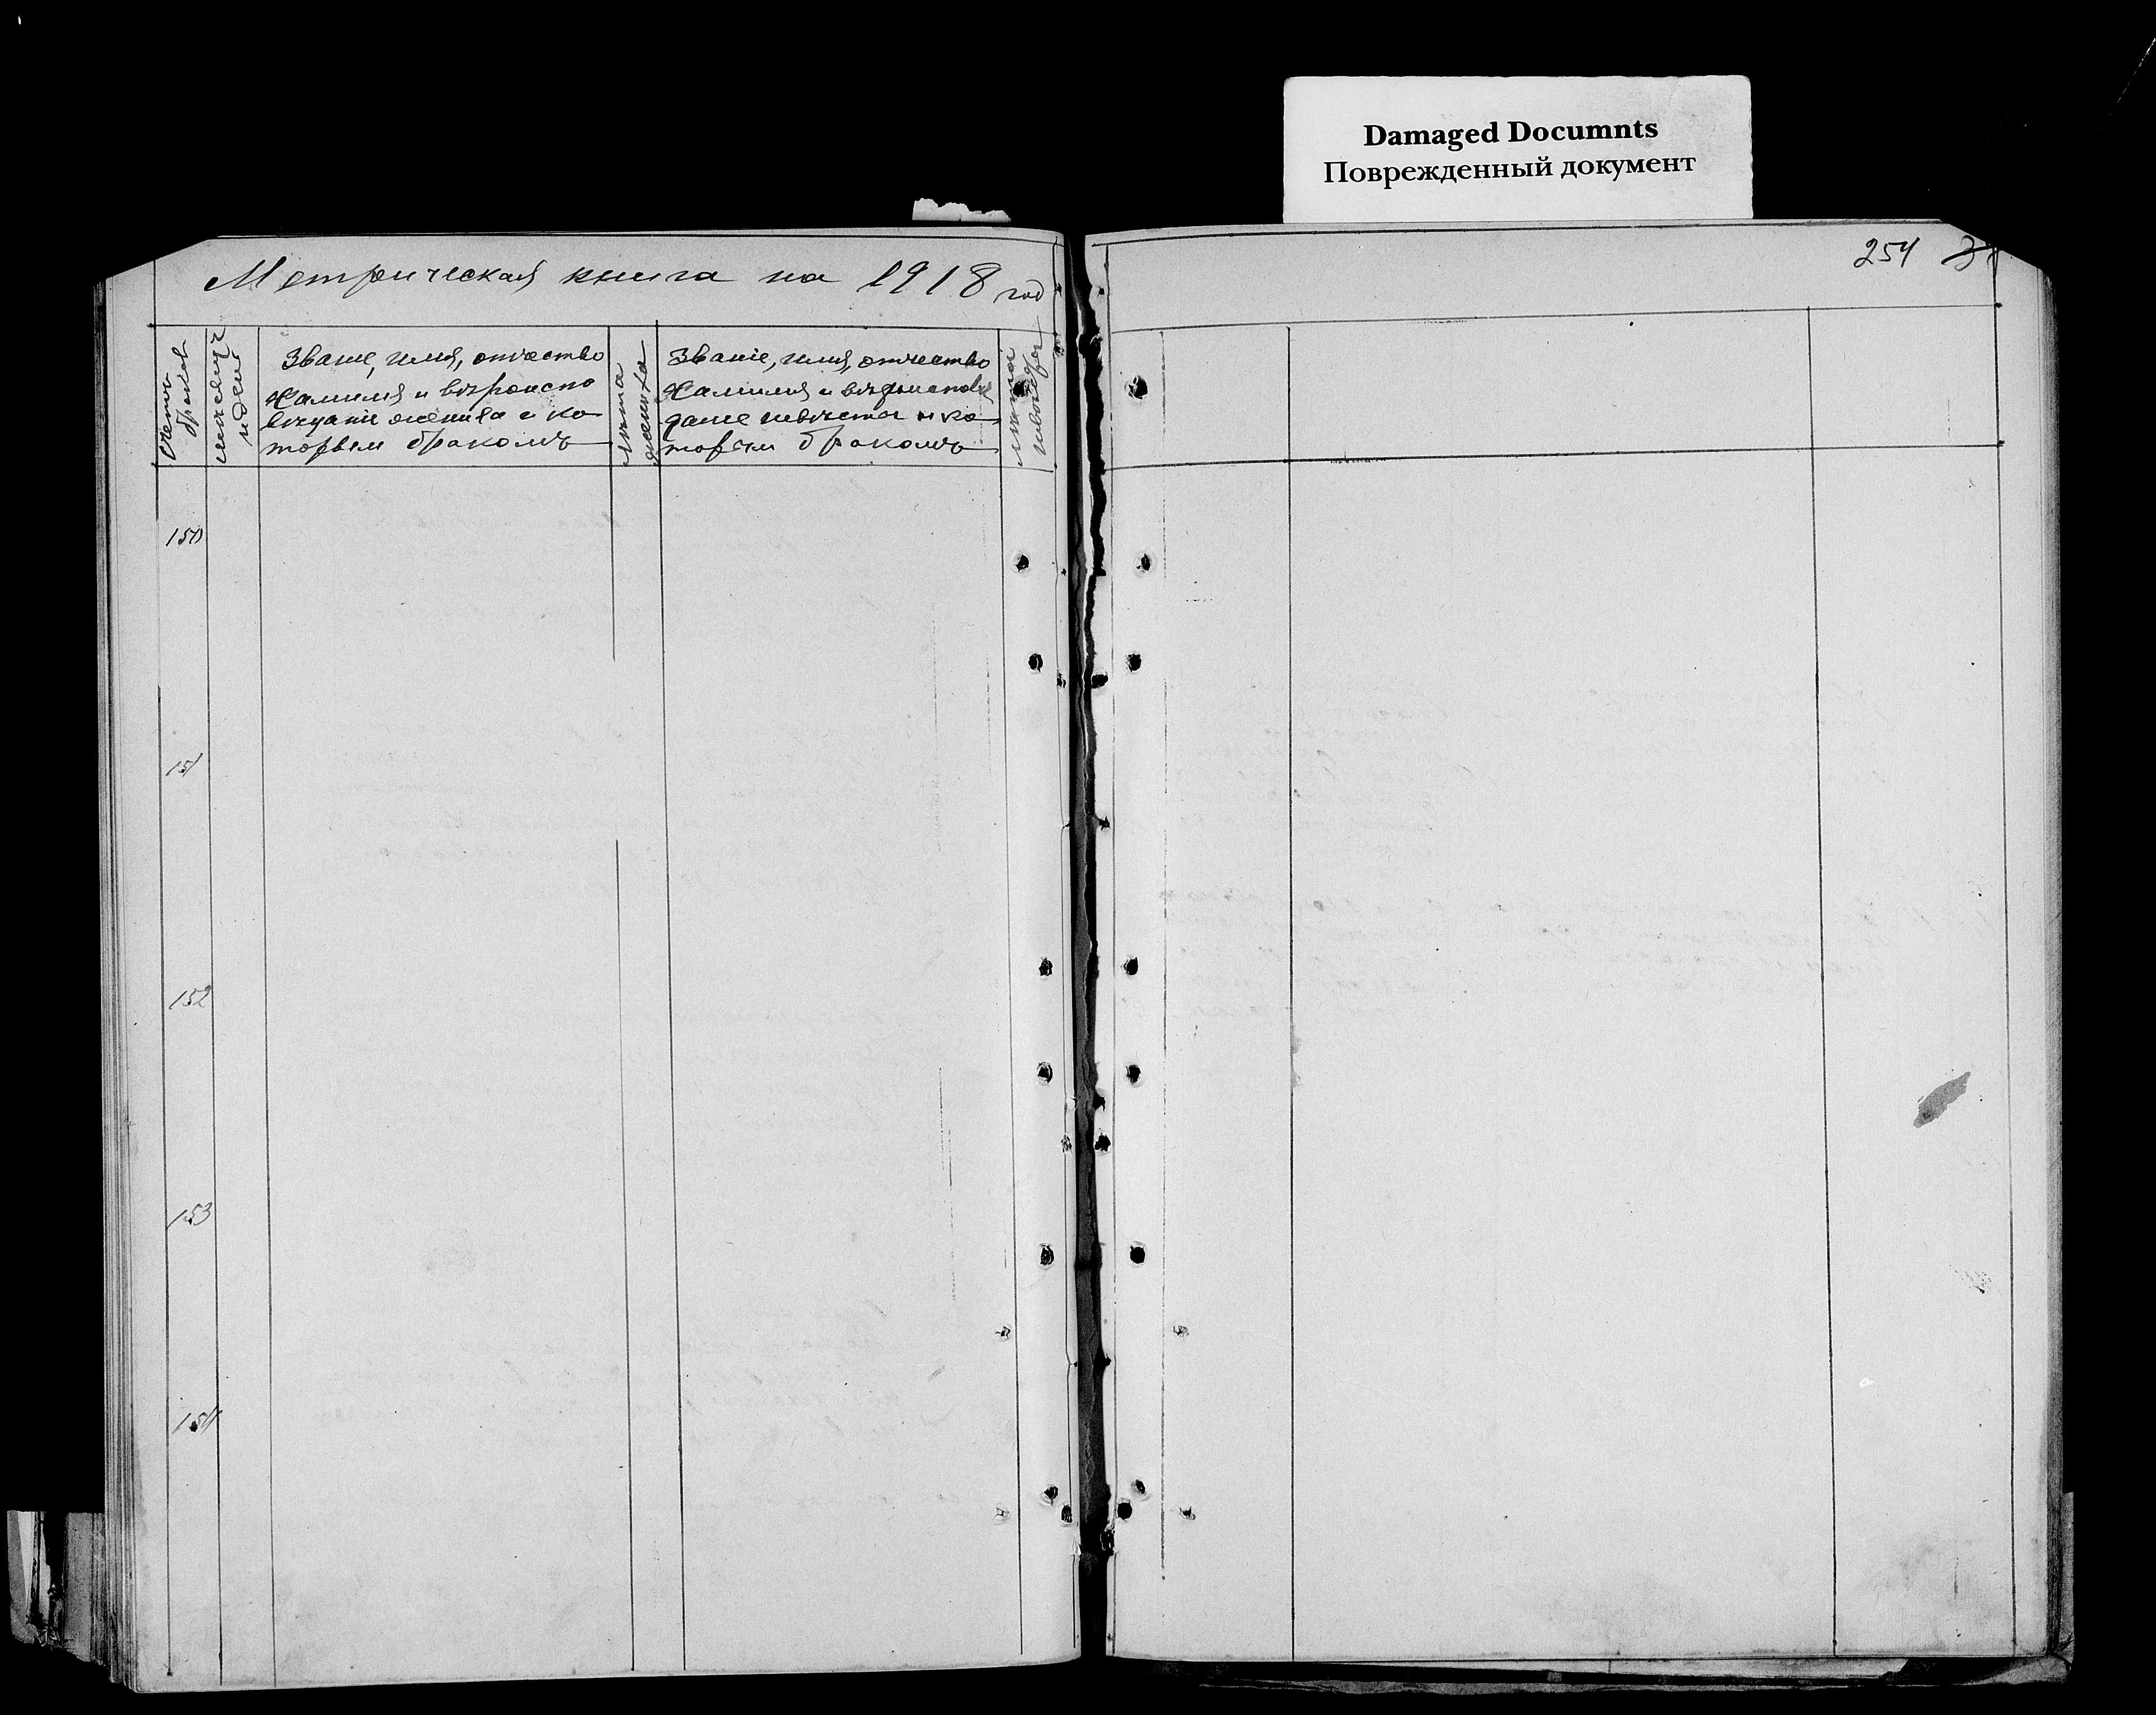 Damaged Documnts
Поврежденный документ
Метрическая книга на 1918 год
254
Счетъ
браковъ
Званіе, имя, отчество
Фамилія и вѣроиспо
вѣданіе жениха и ко
торымъ бракомъ
Лѣта
жениха
Званіе, имя, отчество
Фамилія и вѣроисповѣ
даніе невѣсты и ко
торымъ бракомъ
Лѣта
невѣсты
150
151
152
153
154